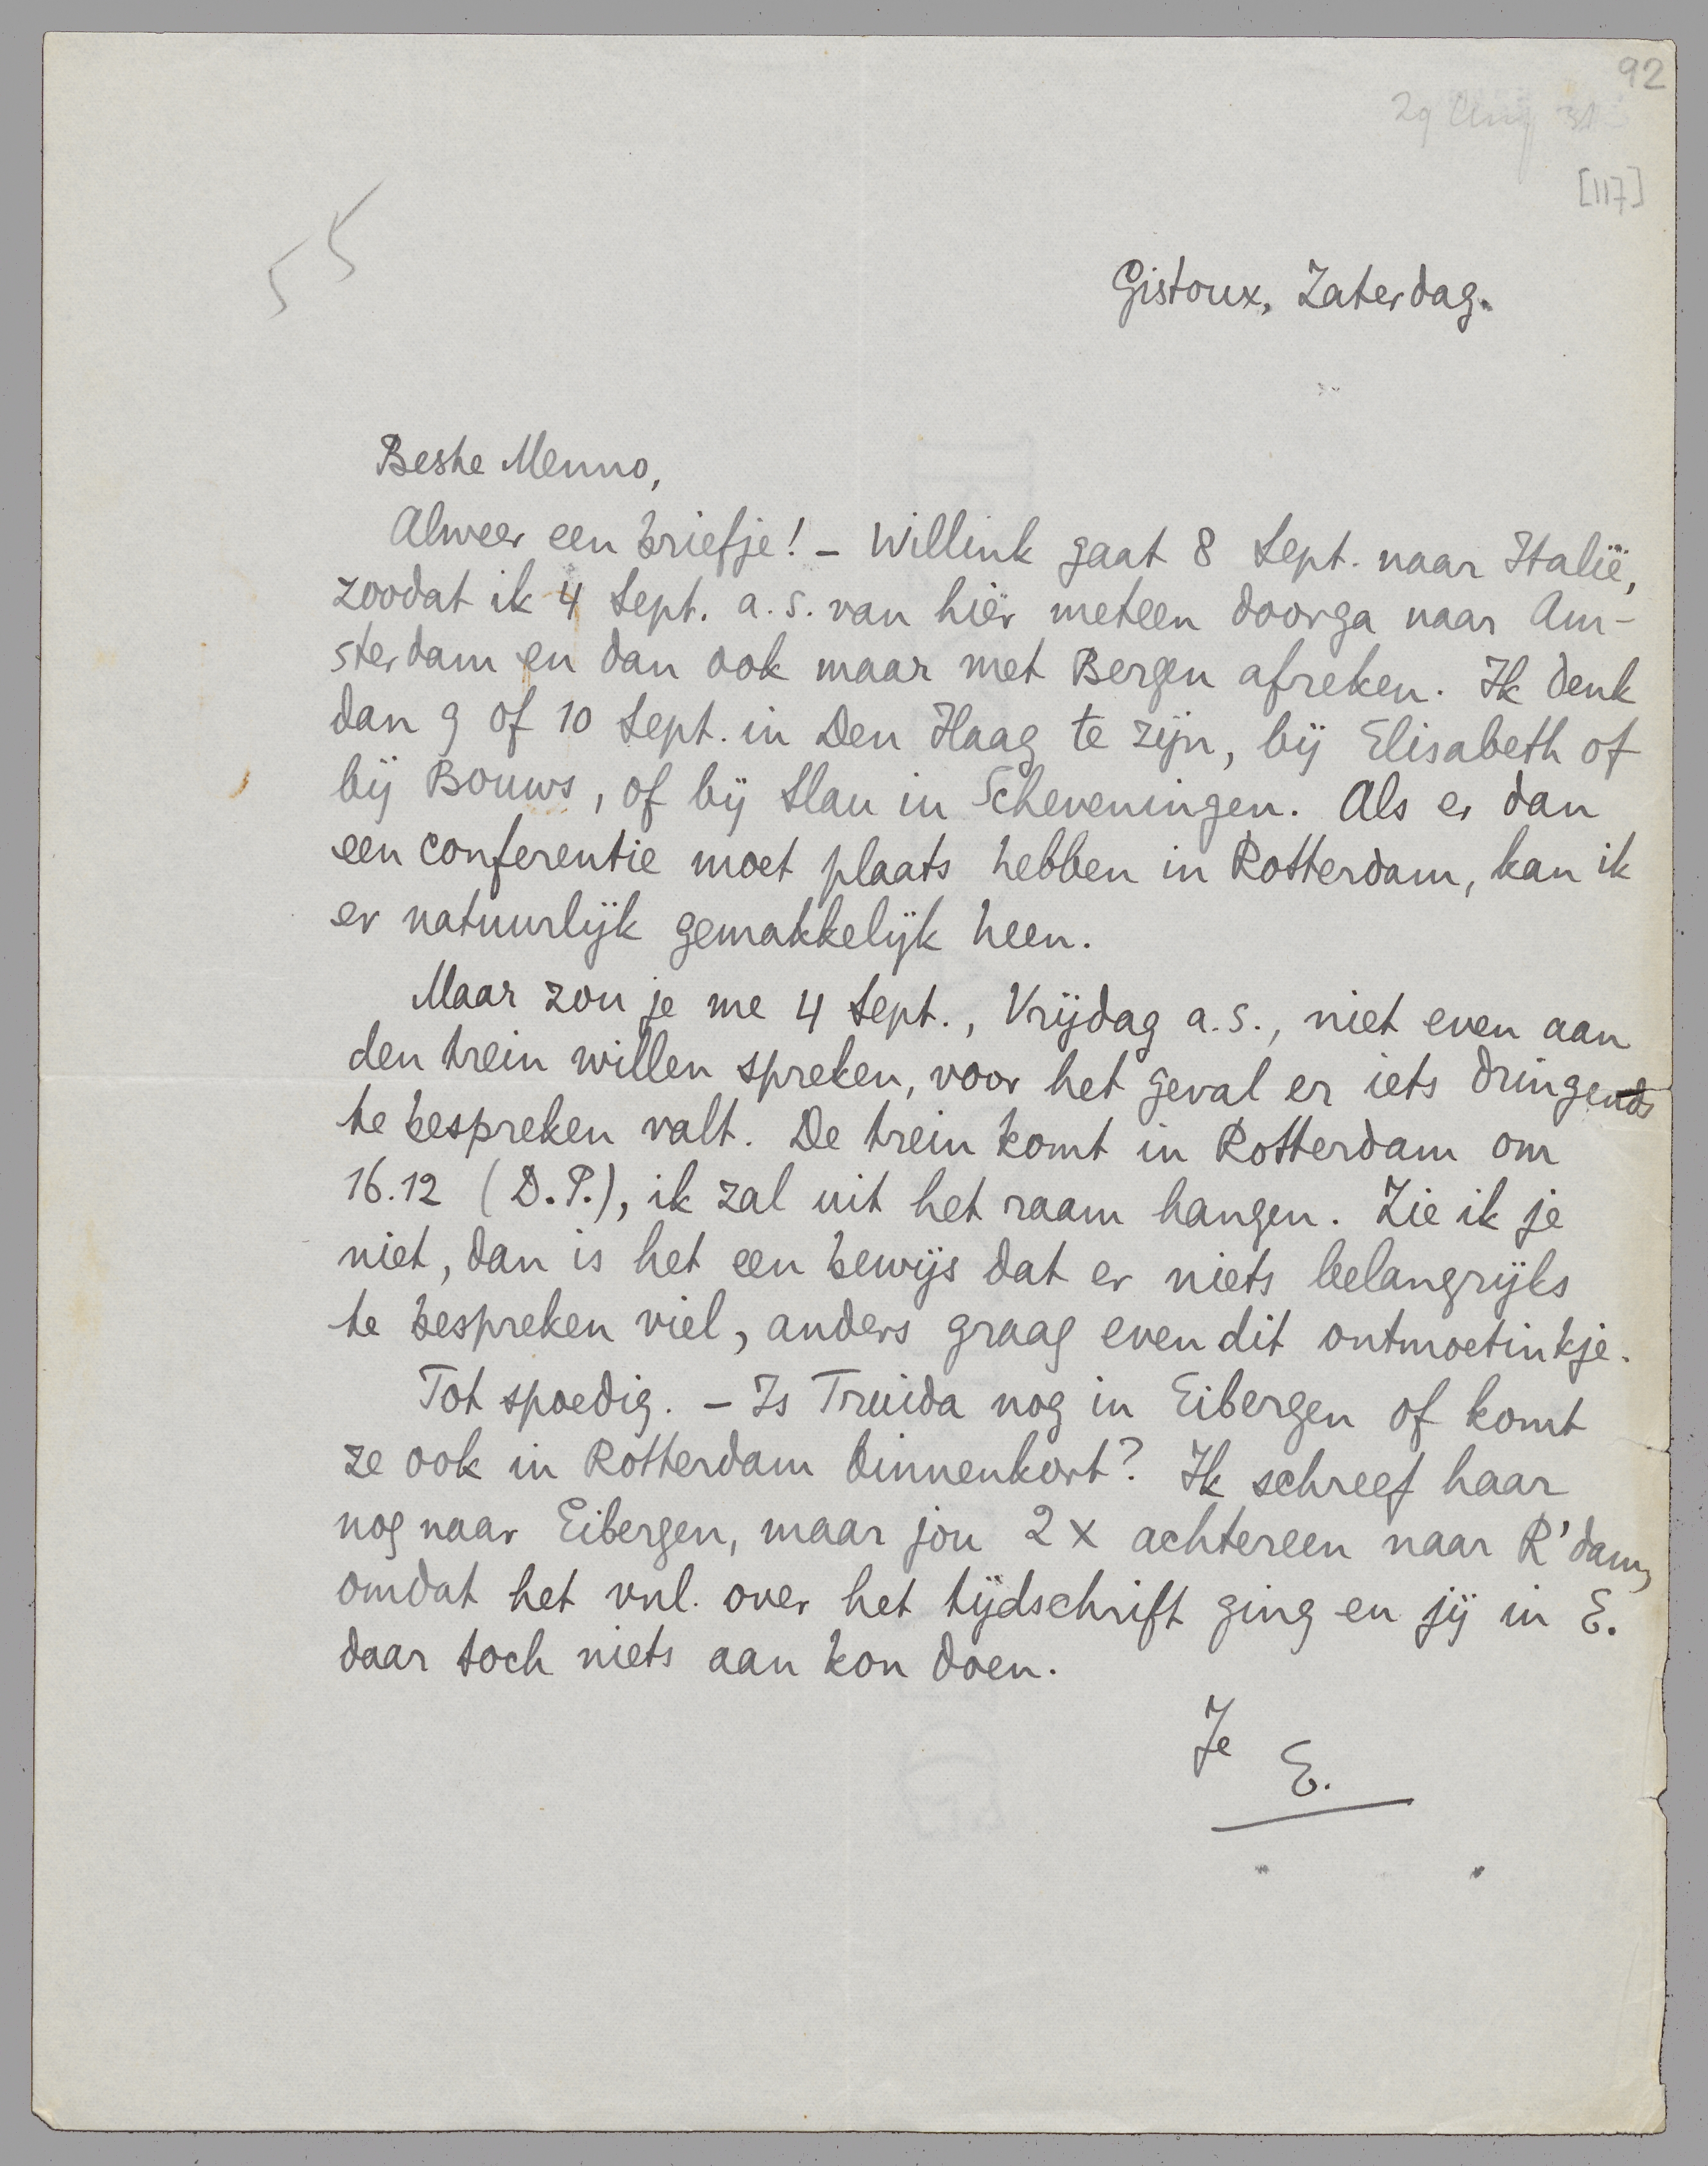 92
29 Aug 31
[117]
55
Gistoux, Zaterdag.
Beste Menno,
Alweer een briefje! - Willink gaat 8 Sept. naar Italië,
zoodat ik 4 Sept. a.s. van hier meteen doorga naar Am-
sterdam en dan ook maar met Bergen afreken. Ik denk
dan 9 of 10 Sept. in Den Haag te zijn, bij Elisabeth of
bij Bouws, of bij Slau in Scheveningen. Als er dan
een conferentie moet plaats hebben in Rotterdam, kan ik
er natuurlijk gemakkelijk heen.
Maar zou je me 4 Sept., Vrijdag a.s., niet even aan
den trein willen spreken, voor het geval er iets dringends
te bespreken valt. De trein komt in Rotterdam om
16.12 (D.P.), ik zal uit het raam hangen. Zie ik je
niet, dan is het een bewijs dat er niets belangrijks
te bespreken viel, anders graag even dit ontmoetinkje.
Tot spoedig. - Is Truida nog in Eibergen of komt
ze ook in Rotterdam binnenkort? Ik schreef haar
nog naar Eibergen, maar jou 2 x achtereen naar R'dam,
omdat het vnl. over het tijdschrift ging en jij in E.
daar toch niets aan kon doen.
Je
E.